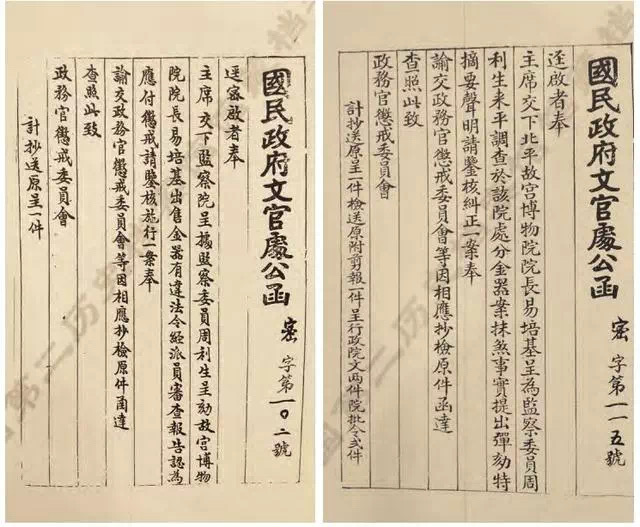 國民政府文官處公函
密字第一〇二號
逕密啟者奉
主席交下監察院呈據監察委員周利生呈劾故宮博物
院院長易培基出售金器有違法令經派員審查報告認為
應付懲戒請鑒核施行一案奉
諭交政務官懲戒委員會等因相應抄檢原件函達
查照此致
政務官懲戒委員會
計抄送原呈一件
國民政府文官處公函
密字第一一五號
逕啟者奉
主席交下北平故宮博物院院長易培基呈為監察委員周
利生來平調查於該院處分金器案抹煞事實提出彈劾特
摘要聲明請鑒核糾正一案奉
諭交政務官懲戒委員會等因相應抄檢原件函達
查照此致
政務官懲戒委員會
計抄送原呈一件檢送原附剪報一件呈行政院文兩件院批令式件